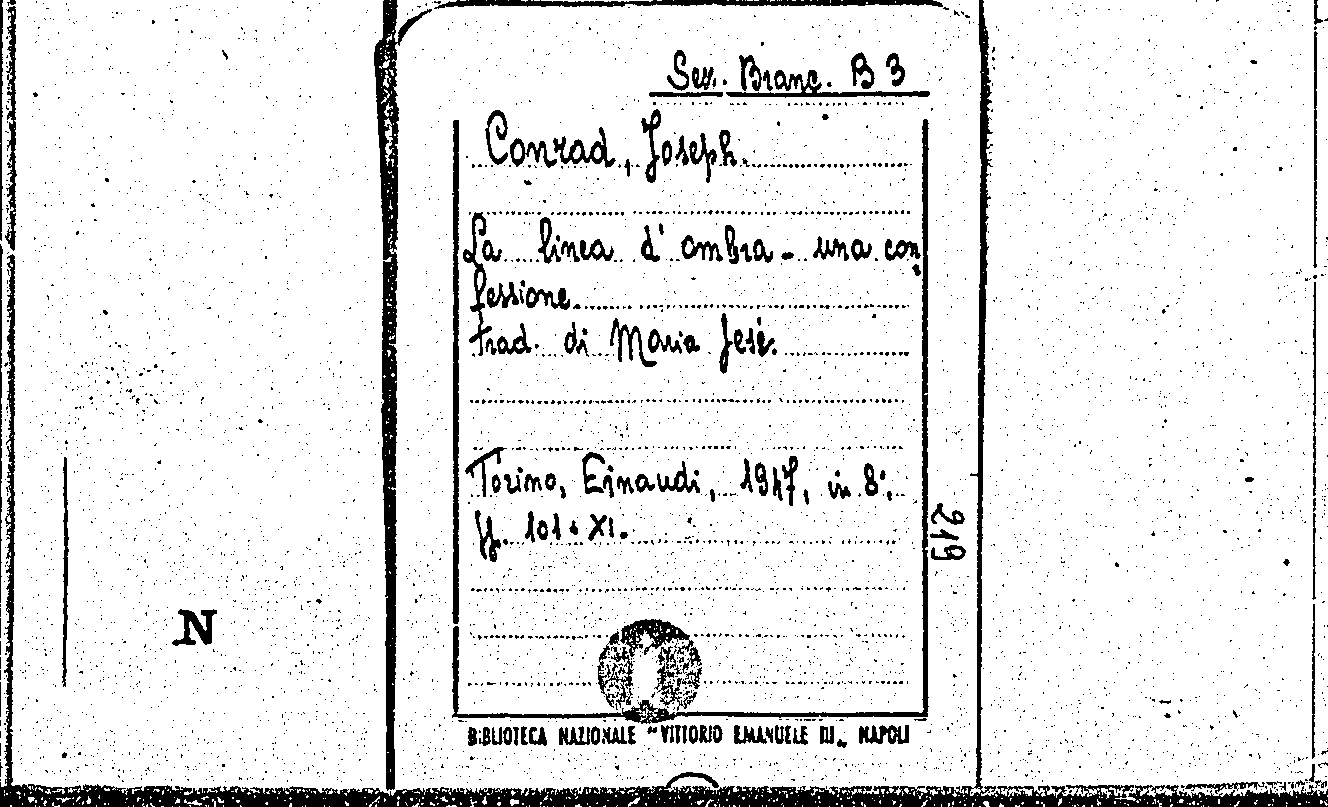 Sez. Branc. B 3
Conrad, Joseph.
La linea d'ombra - una con
fessione.
trad. di Maria Jesi.
Torino, Einaudi, 1947, in 8°,
pp. 101 + XI.
219
N
BIBLIOTECA NAZIONALE "VITTORIO EMANUELE III„ NAPOLI